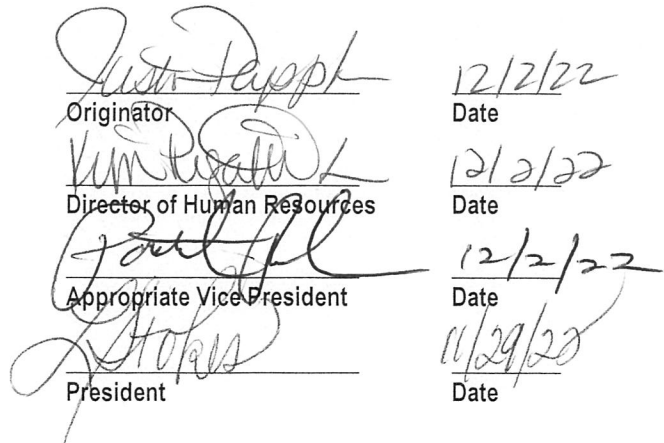 12/2/22
Originator Date
Kim 12/2/22
Director of Human Resources Date
12/2/22
Appropriate Vice President Date
LStokes 11/29/22
President Date